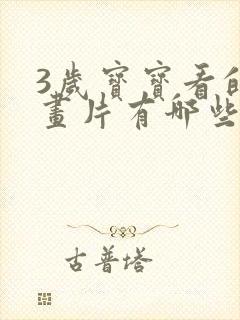 3歲寶寶看的
畫片有哪些
古普塔